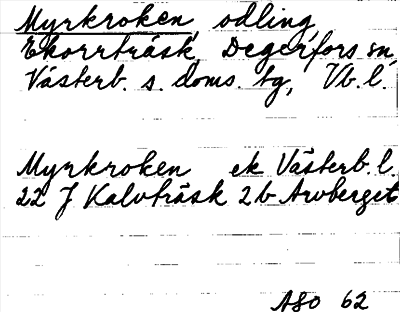 Myrkroken, odling,
Ekorrträsk, Degerfors sn,
Västerb. s. doms. tg, Vb. l.
Myrkroken ek Västerb. l.
22 J Kalvträsk 2 b Arvberget
ASO 62